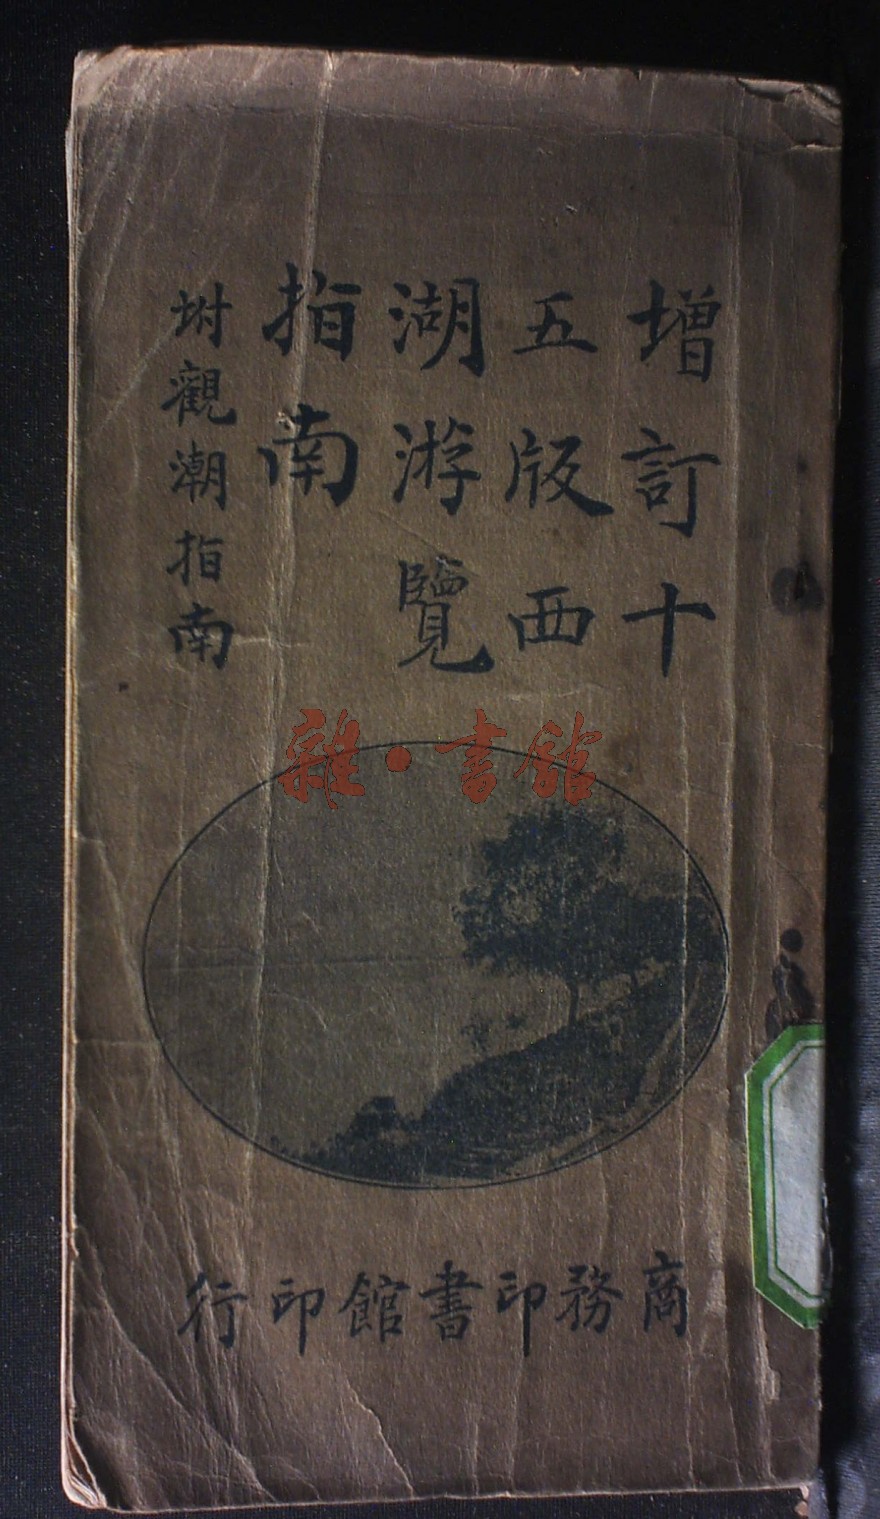 增訂十
五版西
湖游覽
指南
坿觀潮指南
雜·書館
商務印書館印行